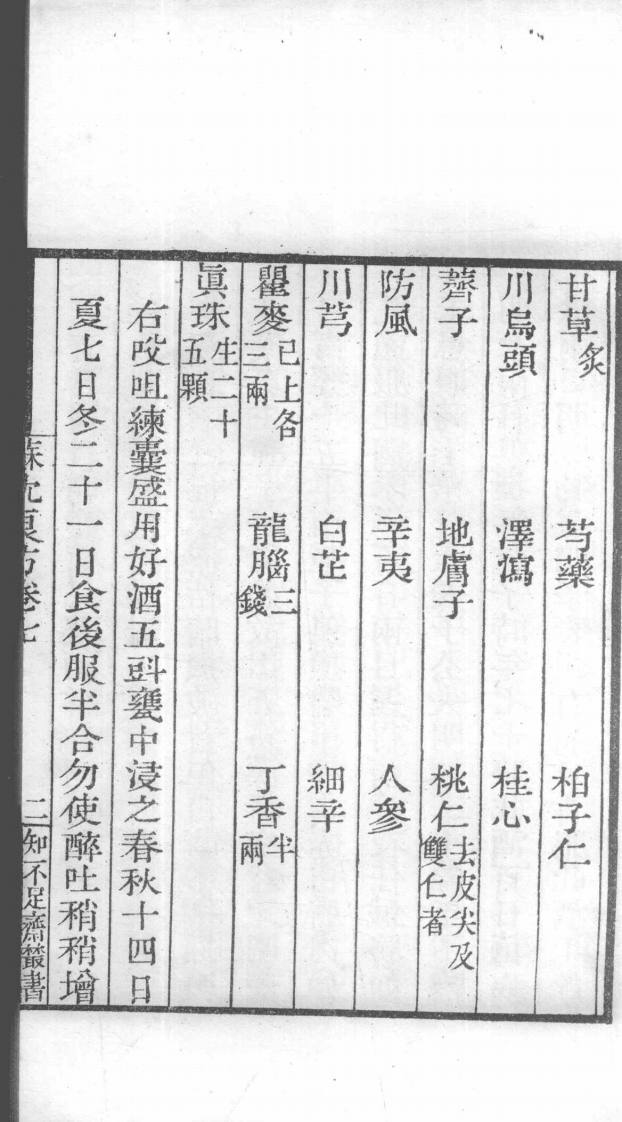 甘草炙　芍藥　柏子仁
川烏頭　澤瀉　桂心
薺子　地膚子　桃仁去皮尖及雙仁者
防風　辛夷　人參
川芎　白芷　細辛
瞿麥已上各三兩　龍腦三錢　丁香半兩
眞珠生二十五顆
右㕮咀練囊盛用好酒五㪷甕中浸之春秋十四日
夏七日冬二十一日食後服半合勿使醉吐稍稍增
蘇沈良方卷七　二　知不足齋叢書